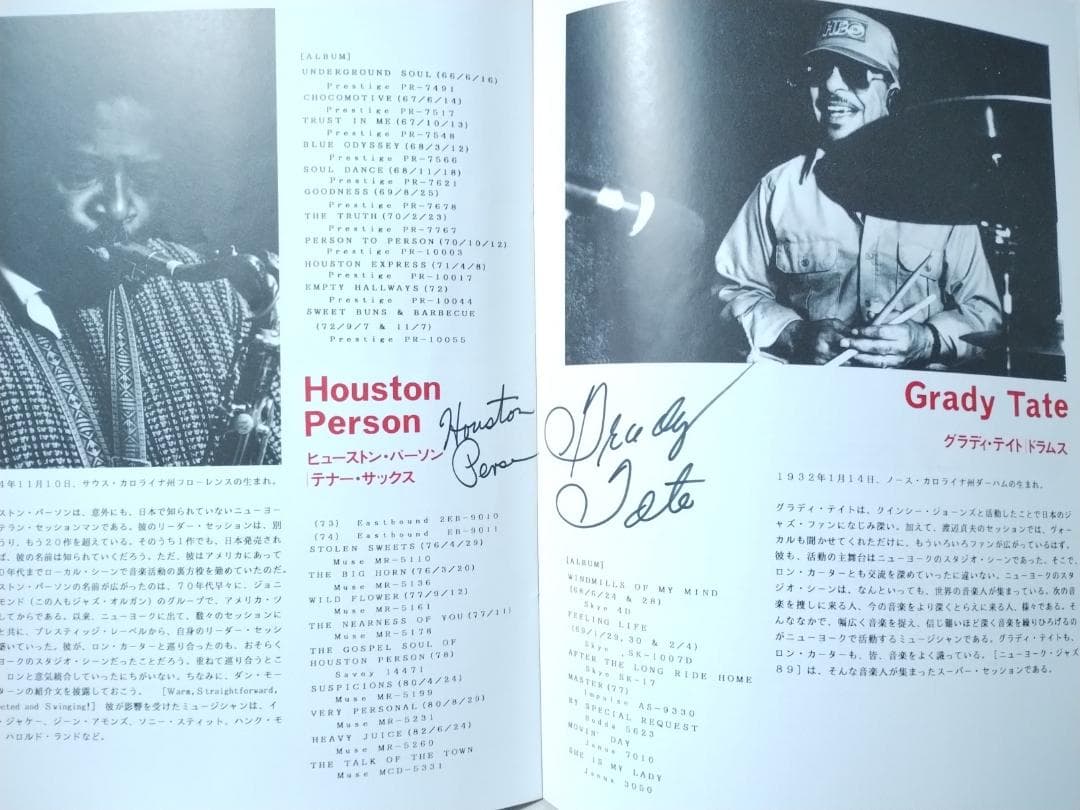 [ALBUM]
UNDERGROUND SOUL (66/6/16)
Prestige PR-7491
CHOCOMOTIVE (67/6/14)
Prestige PR-7517
TRUST IN ME (67/10/13)
Prestige PR-7548
BLUE ODYSSEY (68/3/12)
Prestige PR-7566
SOUL DANCE (68/11/18)
Prestige PR-7621
GOODNESS (69/8/25)
Prestige PR-7678
THE TRUTH (70/2/23)
Prestige PR-7767
PERSON TO PERSON (70/10/12)
Prestige PR-10003
HOUSTON EXPRESS (71/4/8)
Prestige PR-10017
EMPTY HALLWAYS (72)
Prestige PR-10044
SWEET BUNS & BARBECUE
(72/9/7 & 11/7)
Prestige PR-10055
Houston
Person
ヒューストン・パーソン
|テナー・サックス
Houston
Person
4年11月10日、サウス・カロライナ州フローレンスの生まれ。
ストン・パーソンは、意外にも、日本で知られていないニューヨー
テラン・セッションマンである。彼のリーダー・セッションは、別
うり、もう20作を超えている。そのうち1作でも、日本発売され
ば、彼の名前は知られていくだろう。ただ、彼はアメリカにあって
0年代までローカル・シーンで音楽活動の裏方役を勤めていたのだ。
ストン・パーソンの名前が広がったのは、70年代早々に、ジョニ
モンド(この人もジャズ・オルガン)のグループで、アメリカ・ツ
してからである。以来、ニューヨークに出て、数々のセッションに
と共に、プレスティッジ・レーベルから、自身のリーダー・セッシ
築いていった。彼が、ロン・カーターと巡り合ったのも、おそらく
ヨークのスタジオ・シーンだったことだろう。重ねて巡り合うとこ
ロンと意気統合していったにちがいない。ちなみに、ダン・モー
ターンの紹介文を披露しておこう。 [Warm,Straightforward,
ected and Swinging!] 彼が影響を受けたミュージシャンは、イ
・ジャケー、ジーン・アモンズ、ソニー・スティット、ハンク・モ
ハロルド・ランドなど。
(73) Eastbound 2EB-9010
(74) Eastbound EB-9011
STOLEN SWEETS (76/4/29)
Muse MR-5110
THE BIG HORN (76/3/20)
Muse MR-5136
WILD FLOWER (77/9/12)
Muse MR-5161
THE NEARNESS OF YOU (77/11)
Muse MR-5178
THE GOSPEL SOUL OF
HOUSTON PERSON (78)
Savoy 14471
SUSPICIONS (80/4/24)
Muse MR-5199
VERY PERSONAL (80/8/29)
Muse MR-5231
HEAVY JUICE (82/6/24)
Muse MR-5260
THE TALK OF THE TOWN
Muse MCD-5331
HBO
Grady Tate
グラディ・テイト|ドラムス
Grady
Tate
1932年1月14日、ノース・カロライナ州ダーハムの生まれ。
グラディ・テイトは、クインシー・ジョーンズと活動したことで日本のジ
ャズ・ファンになじみ深い。加えて、渡辺貞夫のセッションでは、ヴォー
カルも聞かせてくれただけに、もういろいろファンが広がっているはず。
彼も、活動の主舞台はニューヨークのスタジオ・シーンであった。そこで、
ロン・カーターとも交流を深めていったに違いない。ニューヨークのスタ
ジオ・シーンは、なんといっても、世界の音楽人が集まっている。次の音
楽を捜しに来る人、今の音楽をより深くとらえに来る人、様々である。そ
んななかで、幅広く音楽を捉え、信じ難いほど深く音楽を練りひろげるの
がニューヨークで活動するミュージシャンである。グラディ・テイトも、
ロン・カーターも、皆、音楽をよく識っている。[ニューヨーク・ジャズ
89]は、そんな音楽人が集まったスーパー・セッションである。
[ALBUM]
WINDMILLS OF MY MIND
(68/6/24 & 28)
Skye 4D
FEELING LIFE
(69/1/29,30 & 2/4)
Skye ,SK-1007D
AFTER THE LONG RIDE HOME
Skye SK-17
MASTER (77)
Impulse AS-9330
MY SPECIAL REQUEST
Budda 5623
MOVIN' DAY
Janus 7010
SHE IS MY LADY
Janus 3050